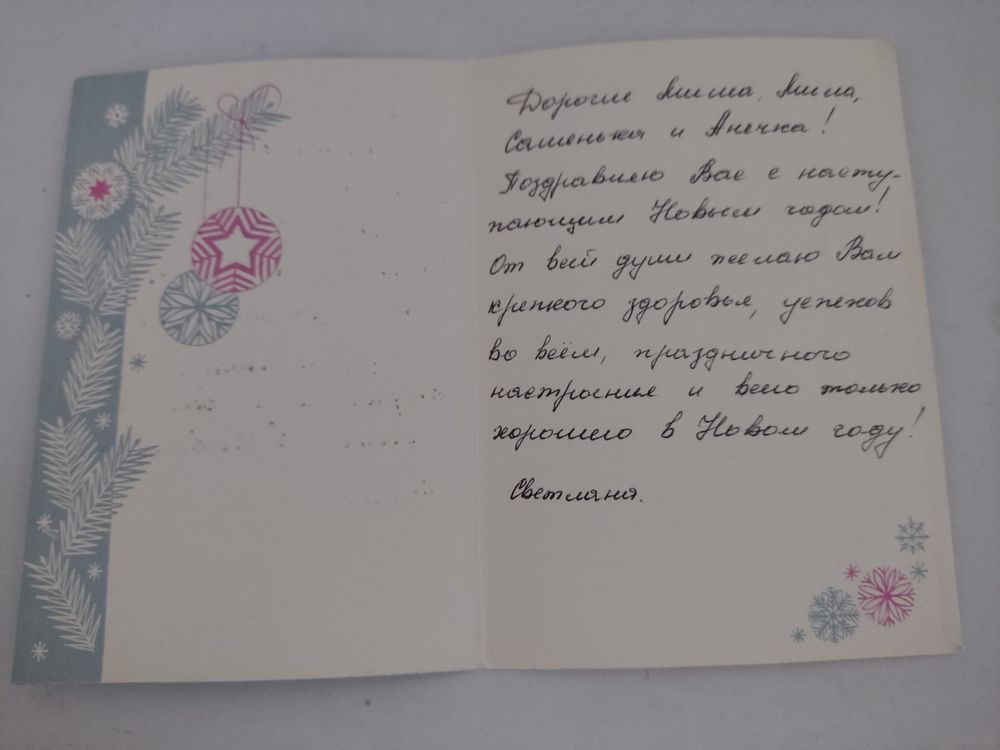 Дорогие Миша, Мила,
Сашенька и Анечка!
Поздравляю Вас с насту-
пающим Новым годом!
От всей души желаю Вам
крепкого здоровья, успехов
во всём, праздничного
настроения и всего только
хорошего в Новом году!
Светлана.